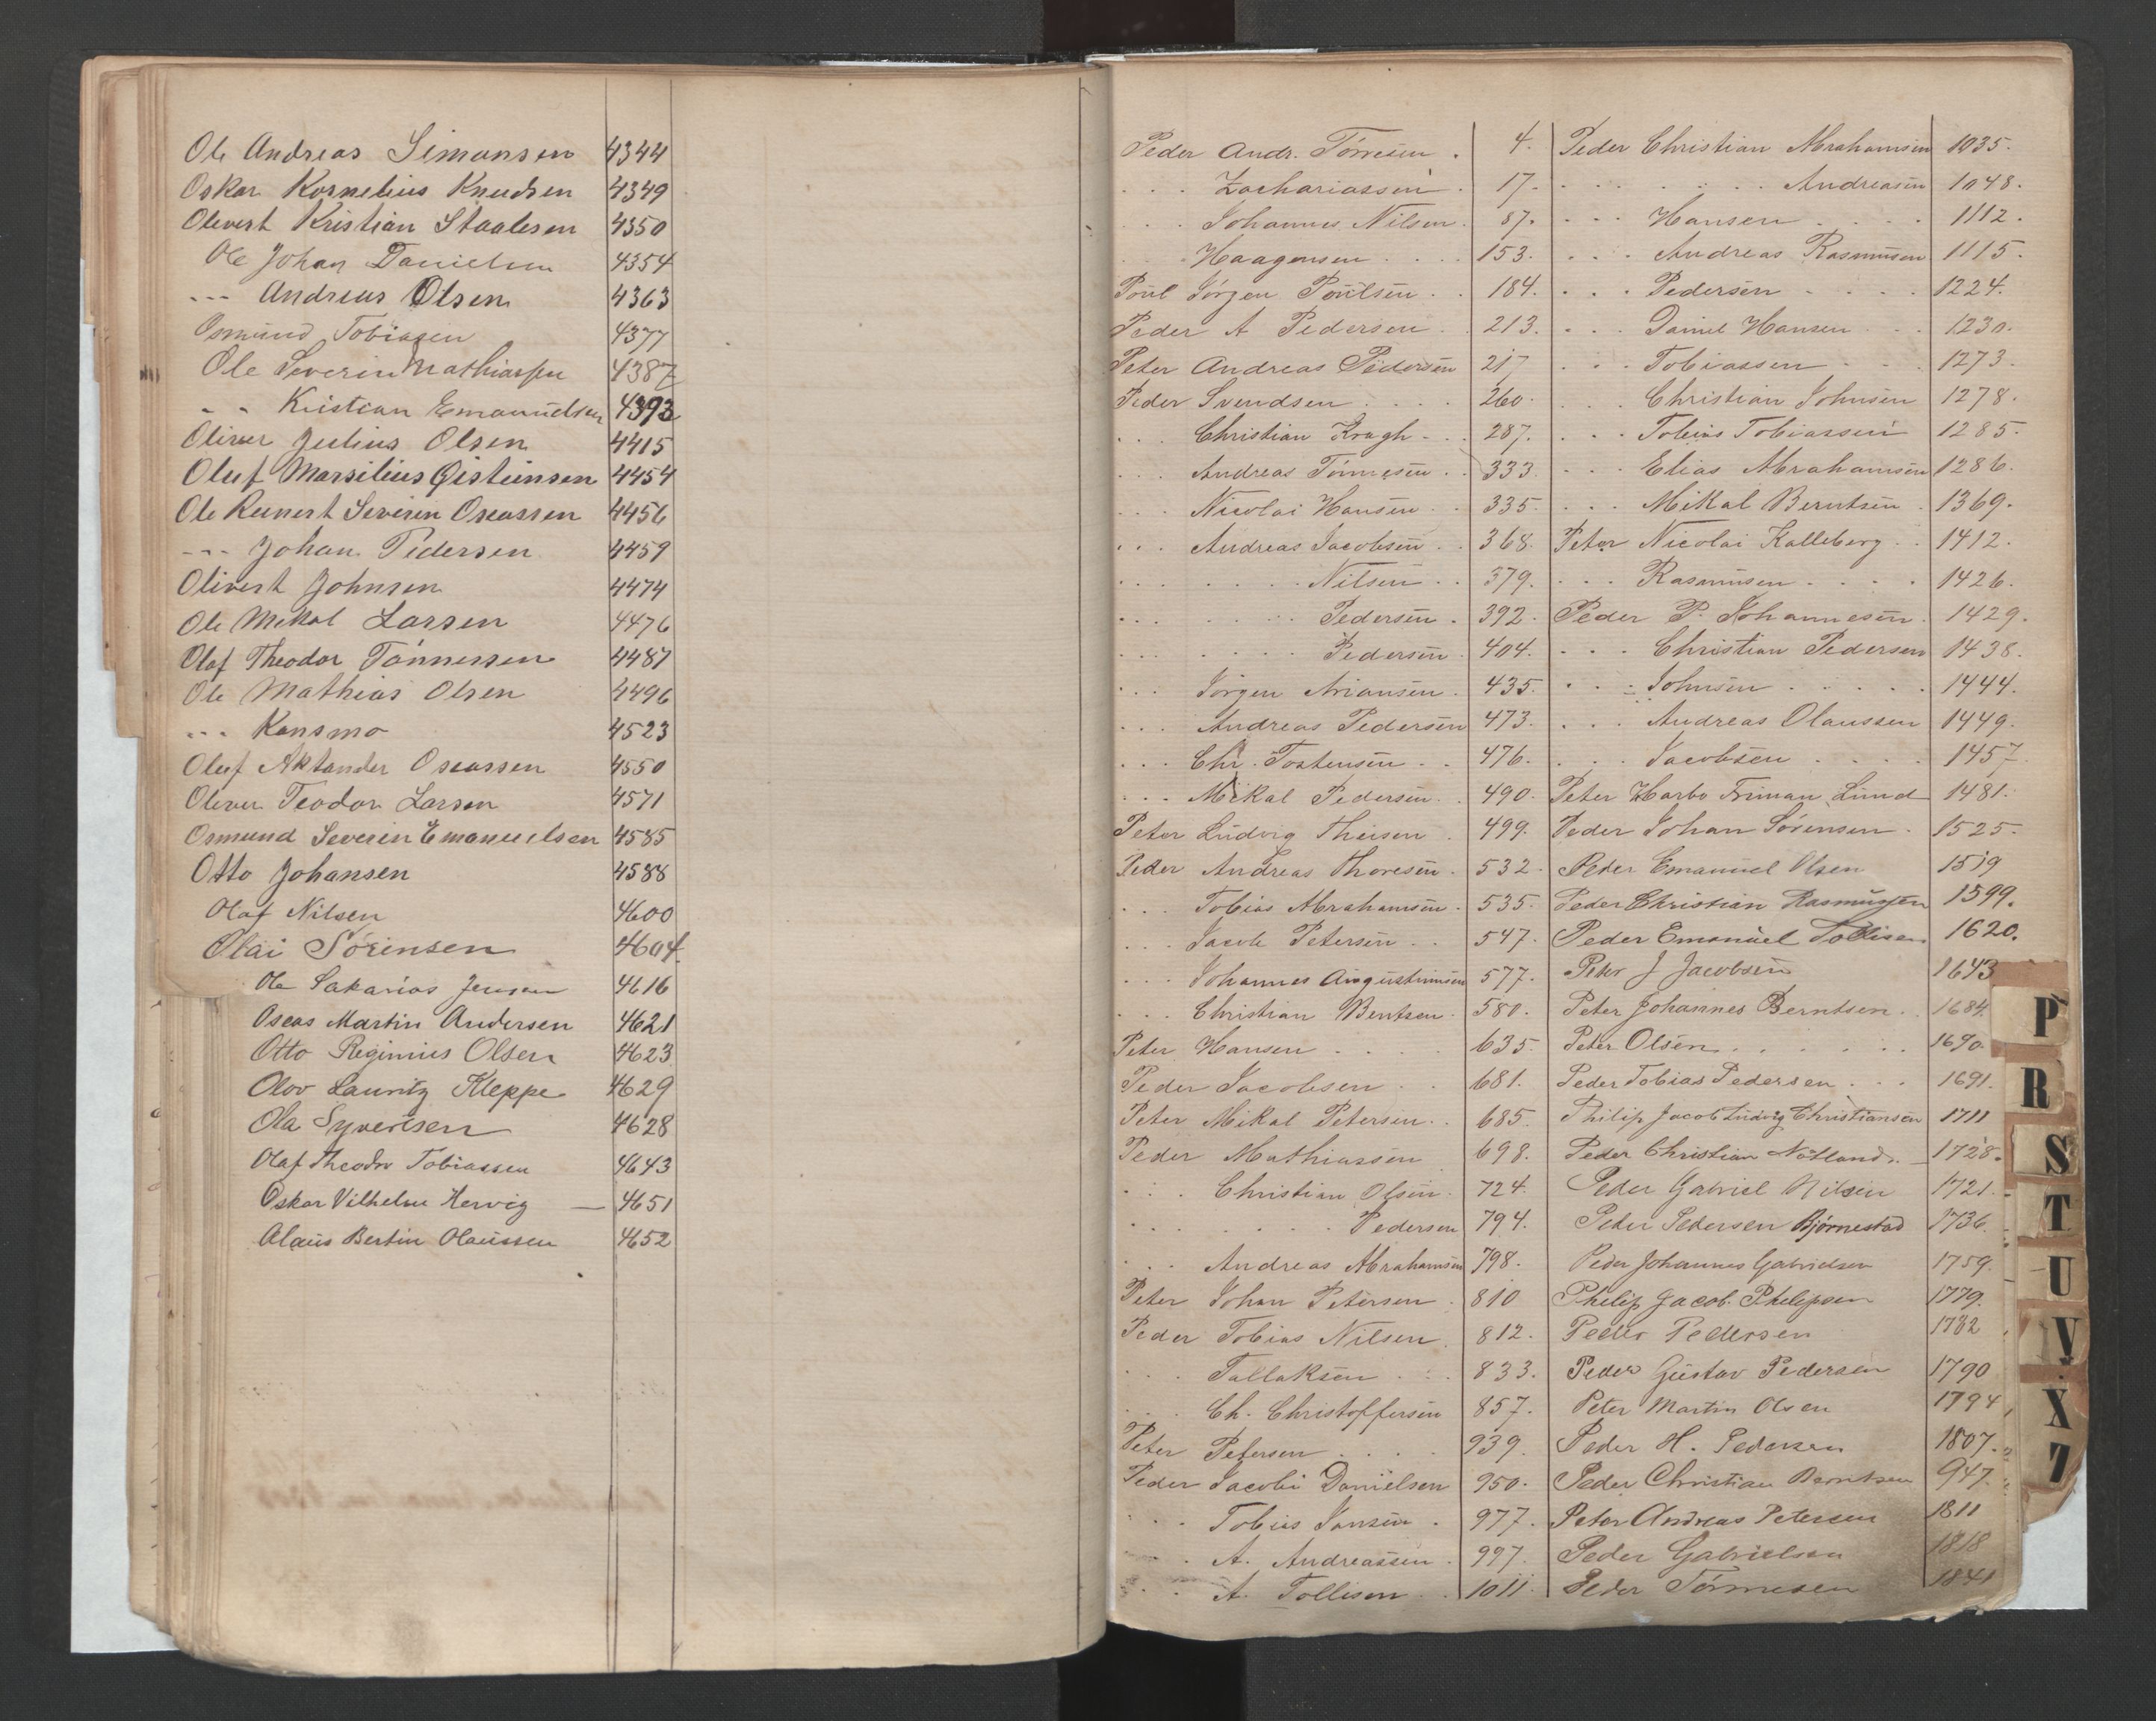 Ole Andreas Simonsen 4344
Oskar Kornelius Knudsen 4349
Olevert Kristian Staalesen 4350
Ole Johan Danielsen 4354
--- Andreas Olsen 4363
Osmund Tobiasen 4377
Ole Severin Mathiassen 4387
- - Kristian Emanuelsen 4393
Oliver Julius Olsen 4415
Oluf Marsilius Gisteinsen 4454
Ole Reinert Severin Oseassen 4456
--- Johan Pedersen 4459
Olivert Johnsen 4474
Ole Mekal Larsen 4476
Olaf Theodor Tönnessen 4487
Ole Mathias Olsen 4496
... Konsmo 4523
Oluf Aktander Oseassen 4550
Oliver Teodor Larsen 4571
Osmund Severin Emanuelsen 4585
Otto Johansen 4588
Olaf Nilsen 4600
Olai Sörensen 4604
Ole Sakarias Jensen 4616
Oseas Martin Andersen 4621
Otto Reginius Olsen 4623
Olov Lauritz Kleppe 4629
Ola Syvertsen 4628
Olaf Theodor Tobiassen 4643
Oskar Vilhelm Hervig — 4651
Olaus Bertin Olaussen 4652
Peder Andr. Tönnesen . 4.
. . . Zachariassen . 17.
. . . Johannes Nilsen . 87.
. . . Haagensen . . . . 153.
Poul Jörgen Poulsen . . 184.
Peder A Pedersen . . 213.
Peter Andreas Pedersen 217
Peder Svendsen . . . . 260.
. . . Christian Krogh - . . 287.
. . . Andreas Tönnesen . . 333.
. . . Nicolai Hansen . . 335.
. . . Andreas Jacobsen . . 368.
. . . . . . . Nilsen . . 379.
. . . . . . . Pedersen . 392.
. . . . . . . Pedersen . 404.
. . . Jörgen Ariansen . 435.
. . . Andreas Pedersen 473.
. . . Chr. Tostensen . . 476.
. . . Mikal Pedersen . . 490.
Peter Ludvig Theisen . 499.
Peder Andreas Thoresen . 532.
. . . Tobias Abrahamsen . 535.
. . . Jacob Petersen . . 547.
. . . Johannes Augustinusen 577.
. . . Christian Bentsen . 580.
Peter Hansen . . . . 635.
Peder Jacobsen . . 681.
Peter Mikal Petersen . . 685.
Peder Mathiassen 698.
. . . Christian Olsen . 724.
. . . . . . . Pedersen 794.
. . . Andreas Abrahamsen 798.
Peter Johan Petersen . 810
Peder Tobias Nilsen . 812.
. . . Tallaksen . . . 833.
. . . Ch. Christoffersen 857.
Peter Petersen . . . . 939.
Peder Jacobi Danielsen 950.
. . . Tobias Jansen . 977.
. . . A. Andreassen . 997.
. . . A. Tollisen . . 1011.
Peder Christian Abrahamsen 1035.
. . . . . . . Andreasen 1048.
. . . Hansen . . . . 1112.
. . . Andreas Rasmusen 1115.
. . . Pedersen . . . . 1224.
. . . Daniel Hansen . . 1230.
. . . Tobiassen . . . 1273.
. . . Christian Johnsen 1278.
. . . Tobias Tobiassen 1285.
. . . Elias Abrahamsen 1286.
. . . Mikal Berntsen . 1369.
Peter Nicolai Kalleberg . . 1412.
. . . Rasmusen . . . . 1426.
Peder P. Johannesen . 1429.
. . . Christian Pedersen 1438.
. . . Johnsen . . . . . 1444.
. . . Andreas Olaussen 1449.
. . . Jacobsen . . . . 1457.
Peter Harbo Friman Lund 1481.
Peder Johan Sörensen . 1525.
Peder Emanuel Olsen 1519
Peder Christian Rasmussen 1599.
Peder Emanuel Tollisen 1620.
Peter J Jacobsen 1643
Peter Johannes Berntsen . . 1684.
Peter Olsen . . . . . . 1690.
Peder Tobias Pedersen . . . 1691.
Philip Jacob Ludvig Christiansen 1711
Peder Christian Nötland . — 1728.
Peder Gabriel Nilsen 1721.
Peder Pedersen Björnestad 1736.
Peder Johannes Gabrielsen 1759.
Philip Jacob Philipsen 1779.
Peder Pedersen 1782
Peder Gustav Pedersen 1790
Peter Martin Olsen 1794
Peder H. Pedersen 1807.
Peder Christian Berntsen 947.
Peter Andreas Petersen 1811
Peder Gabrielsen 1818
Peder Tönnesen 1841
P
R
S
T
U
V
X
Z